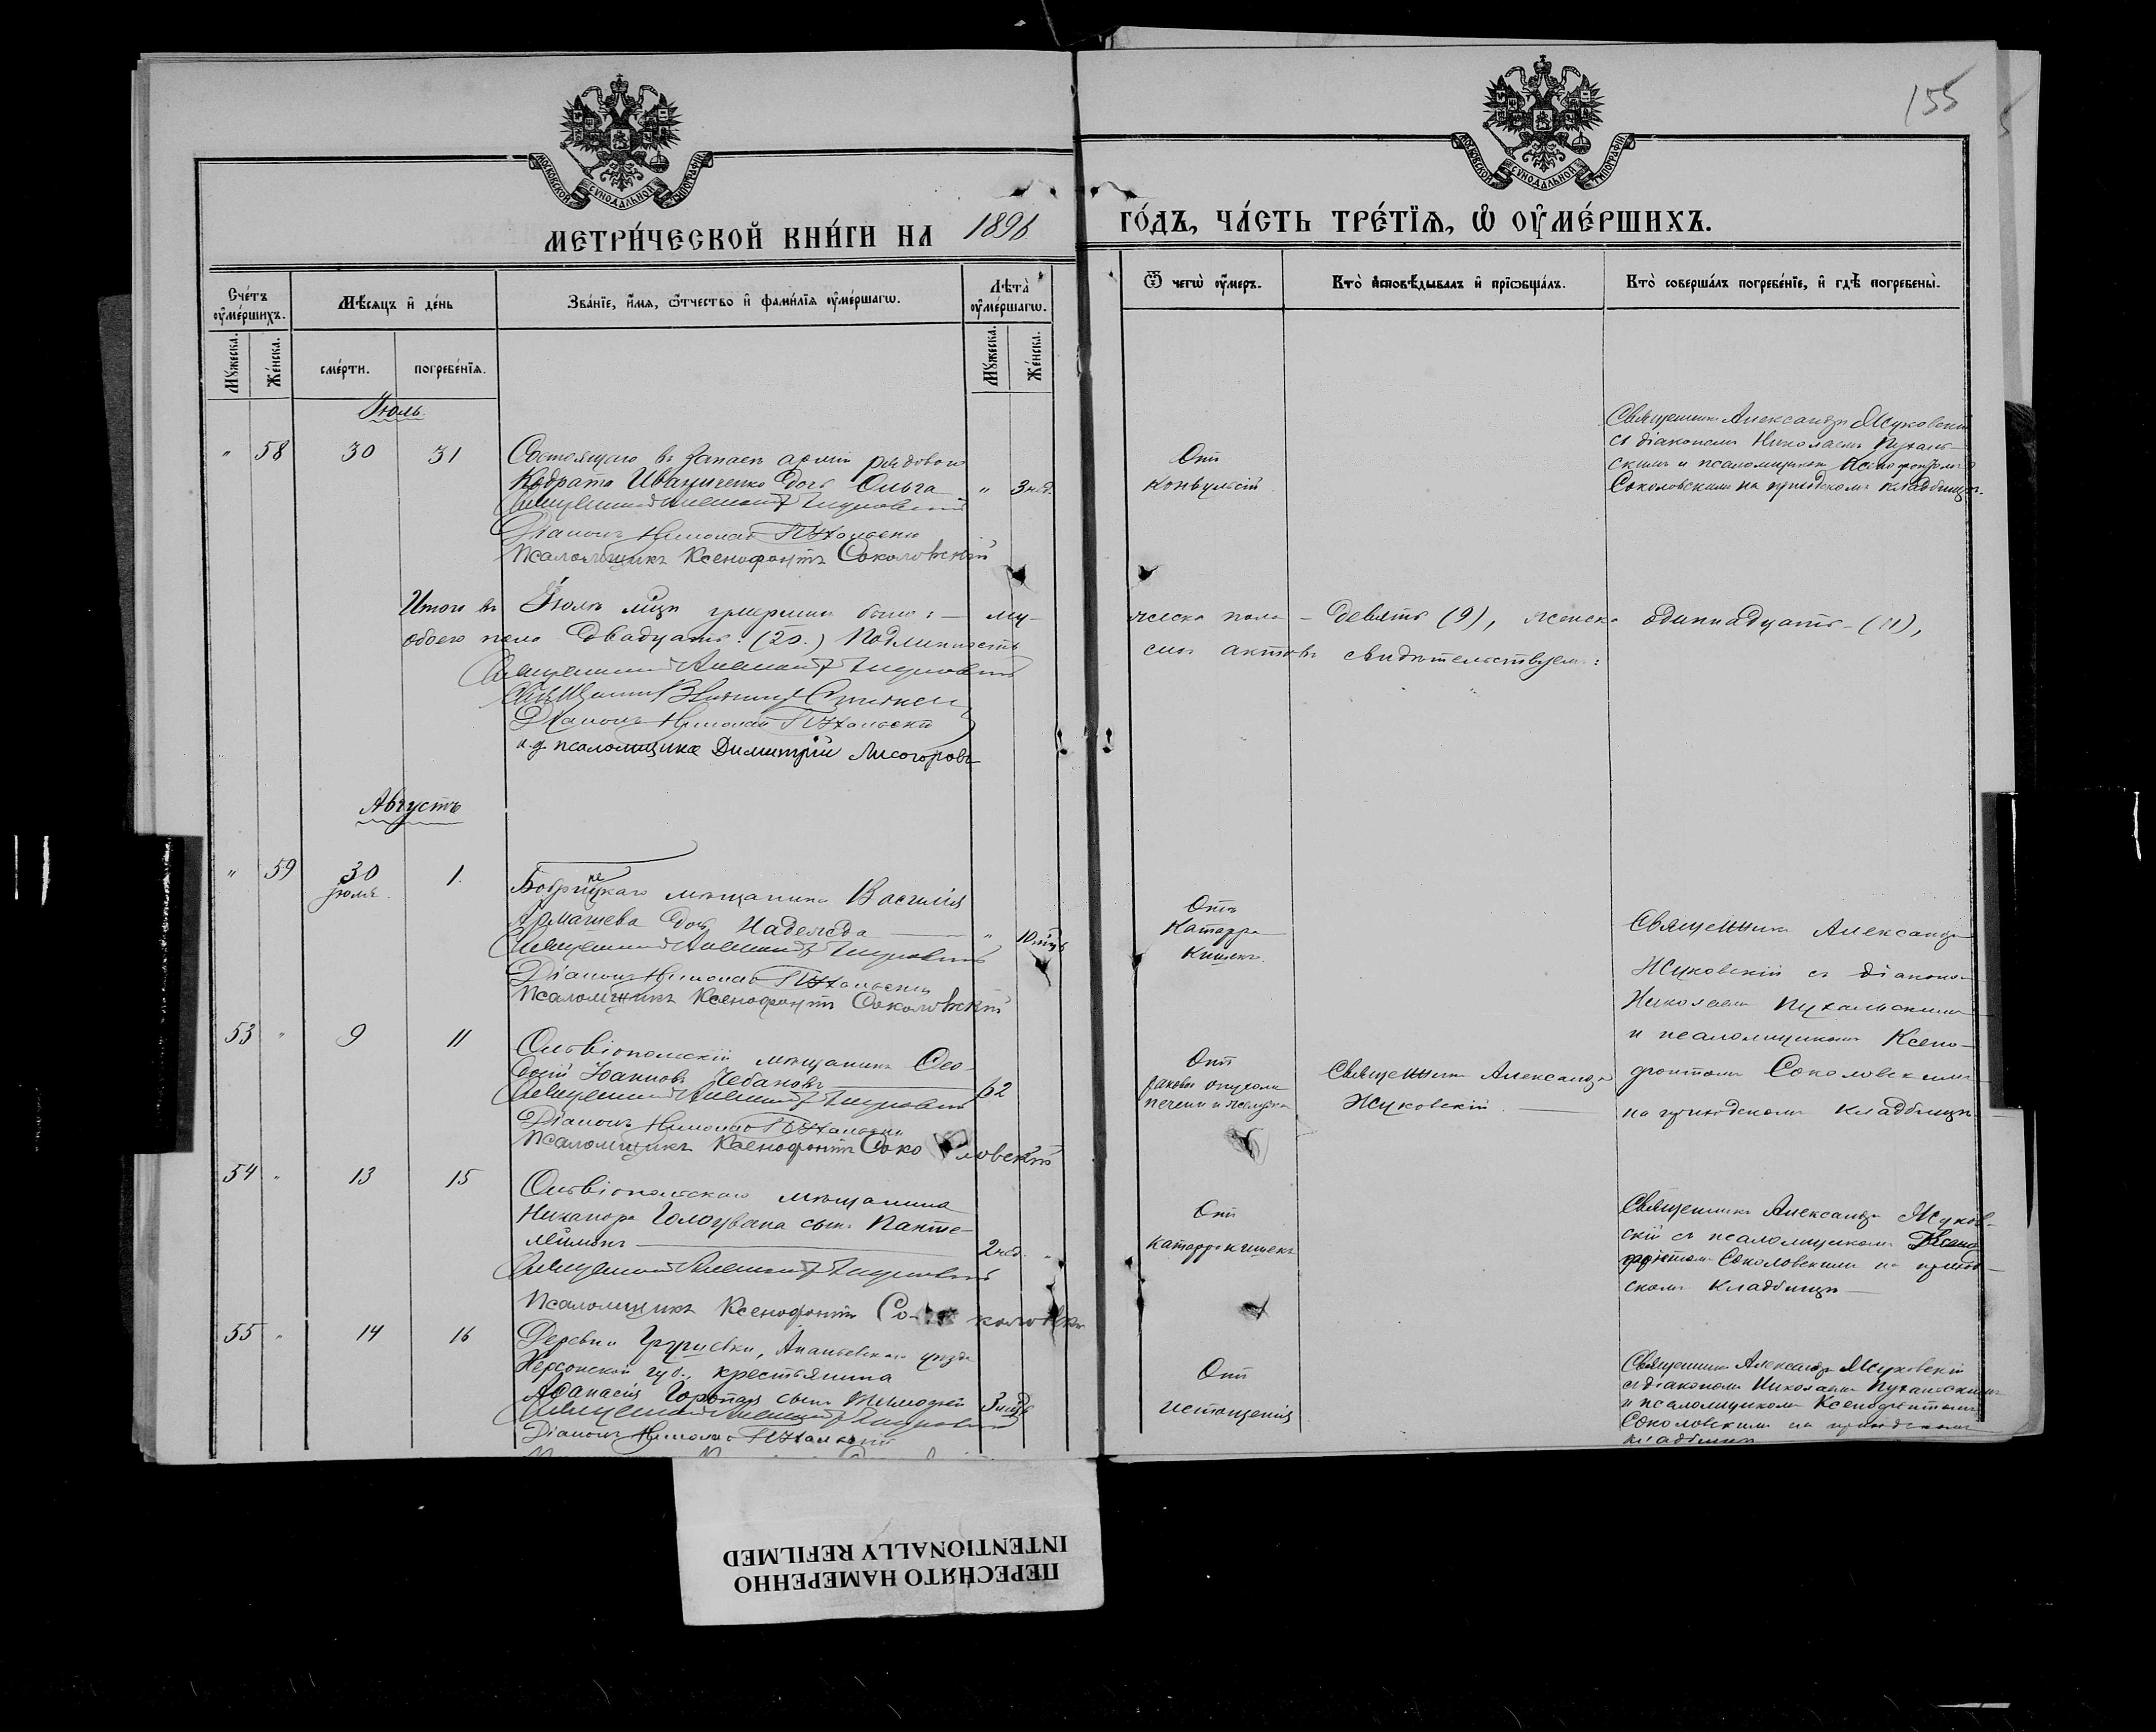 155
МОСКОВСКОЙ СУНОДАЛЬНОЙ ТИПОГРАФІИ
МОСКОВСКОЙ СУНОДАЛЬНОЙ ТИПОГРАФІИ
МЕТРИ́ЧЕСКОЙ КНИ́ГИ НА 1896 ГО́ДЪ, ЧА́СТЬ ТРЕ́ТЇѦ, Ѡ҆ ОУ҆МЕ́РШИХЪ.
Сче́тъ оу҆ме́ршихъ.
Мꙋ́жеска.
Же́нска.
Мѣ́сѧцъ и҆ де́нь
сме́рти.
погребе́нїѧ.
Зва́нїе, и҆́мѧ, ѻ҆́тчество и҆ фами́лїѧ оу҆ме́ршагѡ.
Лѣ́та оу҆ме́ршагѡ.
Мꙋ́жеска.
Же́нска.
Ѿ чегѡ̀ оу҆́меръ.
Кто̀ и҆сповѣ́дывалъ и҆ прїѡбща́лъ.
Кто̀ соверша́лъ погребе́нїе, и҆ гдѣ̀ погребены̀.
Іюль.
" 58 30 31
Состоящаго въ запасѣ арміи рядового
Кодрата Иваниченко дочь Ольга " 3 нед.
Священникъ Александръ Жуковскій
Діаконъ Николай Пухальскій
Псаломщикъ Ксенофонтъ Соколовскій
Отъ
конвульсій
Священникъ Александръ Жуковскій
съ діакономъ Николаемъ Пухаль-
скимъ и псаломщикомъ Ксенофонтомъ
Соколовскимъ на приходскомъ кладбищѣ.
Итого въ Іюлѣ мцѣ умершихъ было: — му-
жеска пола — девять (9), женска одиннадцать — (11),
обоего пола двадцать. (20.) Подлинность
сихъ актовъ свидѣтельствуемъ:
Священникъ Александръ Жуковскій
Діаконъ Николай Пухальскій
и. д. псаломщика Димитрій Лисогоровъ
Августъ
" 59 30 Іюля 1.
Бобринецкаго мѣщанина Василія
Армашева дочь Надежда — " 10 мцъ
Священникъ Александръ Жуковскій
Діаконъ Николай Пухальскій
Псаломщикъ Ксенофонтъ Соколовскій
Отъ
Катарра
Кишекъ.
Священникъ Александръ
Жуковскій съ діакономъ
Николаемъ Пухальскимъ
и псаломщикомъ Ксено-
фонтомъ Соколовскимъ
на приходскомъ кладбищѣ
53 " 9 11
Ольвіопольскій мѣщанинъ Ѳео-
досій Іоанновъ Чебановъ — 62
Священникъ Александръ Жуковскій
Діаконъ Николай Пухальскій
Псаломщикъ Ксенофонтъ Соколовскій
Отъ
раковой опухоли
печени и желудка
Священникъ Александръ
Жуковскій. —
54 " 13 15
Ольвіопольскаго мѣщанина
Никанора Голодвана сынъ Панте-
леймонъ — 2 нед. "
Священникъ Александръ Жуковскій
Псаломщикъ Ксенофонтъ Соколовскій
Отъ
катарра кишекъ
Священникъ Александръ Жуков-
скій съ псаломщикомъ Ксено
фонтомъ Соколовскимъ на приход-
скомъ кладбищѣ —
55 " 14 16
Деревни Ананьевскаго уѣзда
Херсонской губ., крестьянина
Аѳанасія сынъ Тимоѳей 3 мцъ
Священникъ Александръ Жуковскій
Діаконъ Николай Пухальскій
Отъ
истощенія
Священникъ Александръ Жуковскій
съ діакономъ Николаемъ Пухальскимъ
и псаломщикомъ Ксенофонтомъ
Соколовскимъ на приходскомъ
кладбищѣ
ПЕРЕСНЯТО НАМЕРЕННО
INTENTIONALLY REFILMED